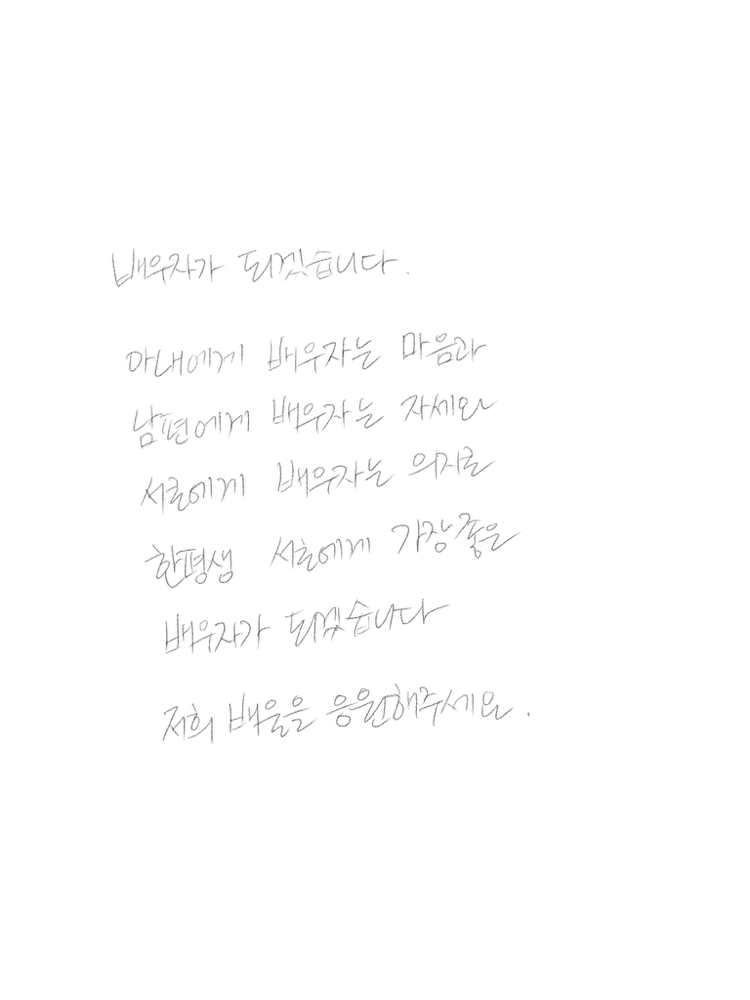 배우자가 되겠습니다.
아내에게 배우자는 마음과
남편에게 배우자는 자세와
서로에게 배우자는 의지로
한평생 서로에게 가장 좋은
배우자가 되겠습니다
저희 배움을 응원해주세요.